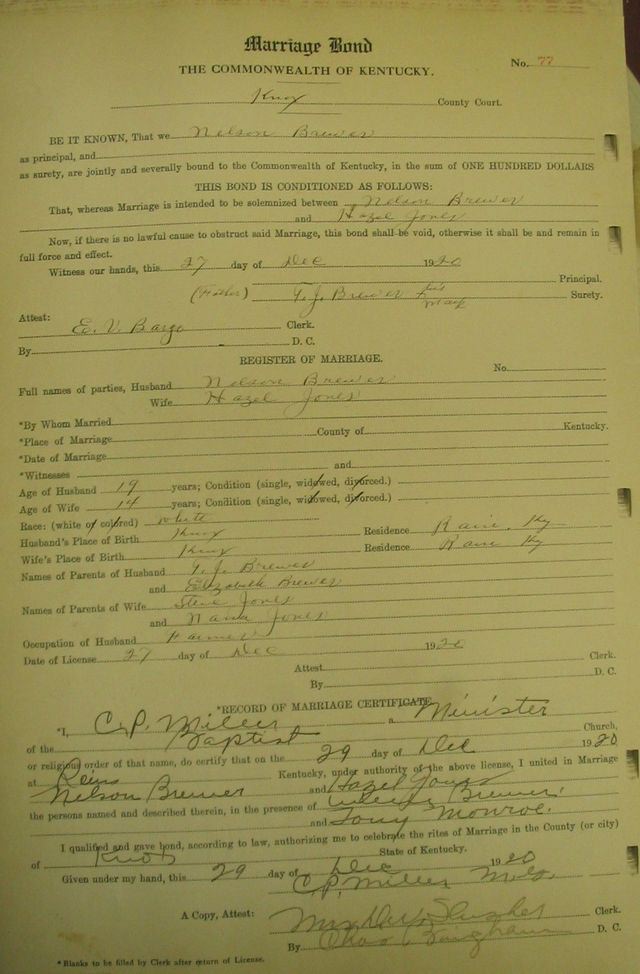 Marriage Bond
THE COMMONWEALTH OF KENTUCKY.
No. 77
Knox County Court.
BE IT KNOWN, That we Nelson Brewer
as principal, and
as surety, are jointly and severally bound to the Commonwealth of Kentucky, in the sum of ONE HUNDRED DOLLARS
THIS BOND IS CONDITIONED AS FOLLOWS:
That, whereas Marriage is intended to be solemnized between Nelson Brewer
and Hazel Jones
Now, if there is no lawful cause to obstruct said Marriage, this bond shall be void, otherwise it shall be and remain in
full force and effect.
Witness our hands, this 27 day of Dec 1920
Principal.
(Father) T. J. Brewer his mark Surety.
Attest:
E. V. Bargo Clerk.
By D. C.
REGISTER OF MARRIAGE.
No.
Full names of parties, Husband Nelson Brewer
Wife Hazel Jones
*By Whom Married
*Place of Marriage County of Kentucky.
*Date of Marriage
*Witnesses and
Age of Husband 19 years; Condition (single, widowed, divorced.)
Age of Wife 14 years; Condition (single, widowed, divorced.)
Race: (white or colored) white
Husband's Place of Birth Knox Residence Rain, Ky
Wife's Place of Birth Knox Residence Rain Ky
Names of Parents of Husband T. J. Brewer
and Elizabeth Brewer
Names of Parents of Wife Steve Jones
and Jones
Occupation of Husband Farmer
Date of License 27 day of Dec 1920
Attest Clerk.
By D. C.
*RECORD OF MARRIAGE CERTIFICATE
*I, C. P. Miller a Minister
of the Baptist Church,
or religious order of that name, do certify that on the 29 day of Dec 1920
at Kentucky, under authority of the above license, I united in Marriage
Nelson Brewer and Hazel Jones
the persons named and described therein, in the presence of Brewer,
and Tony Monroe.
I qualified and gave bond, according to law, authorizing me to celebrate the rites of Marriage in the County (or city)
of Knox State of Kentucky.
Given under my hand, this 29 day of Dec 1920
C. P. Miller
A Copy, Attest: Clerk.
By D. C.
* Blanks to be filled by Clerk after return of License.